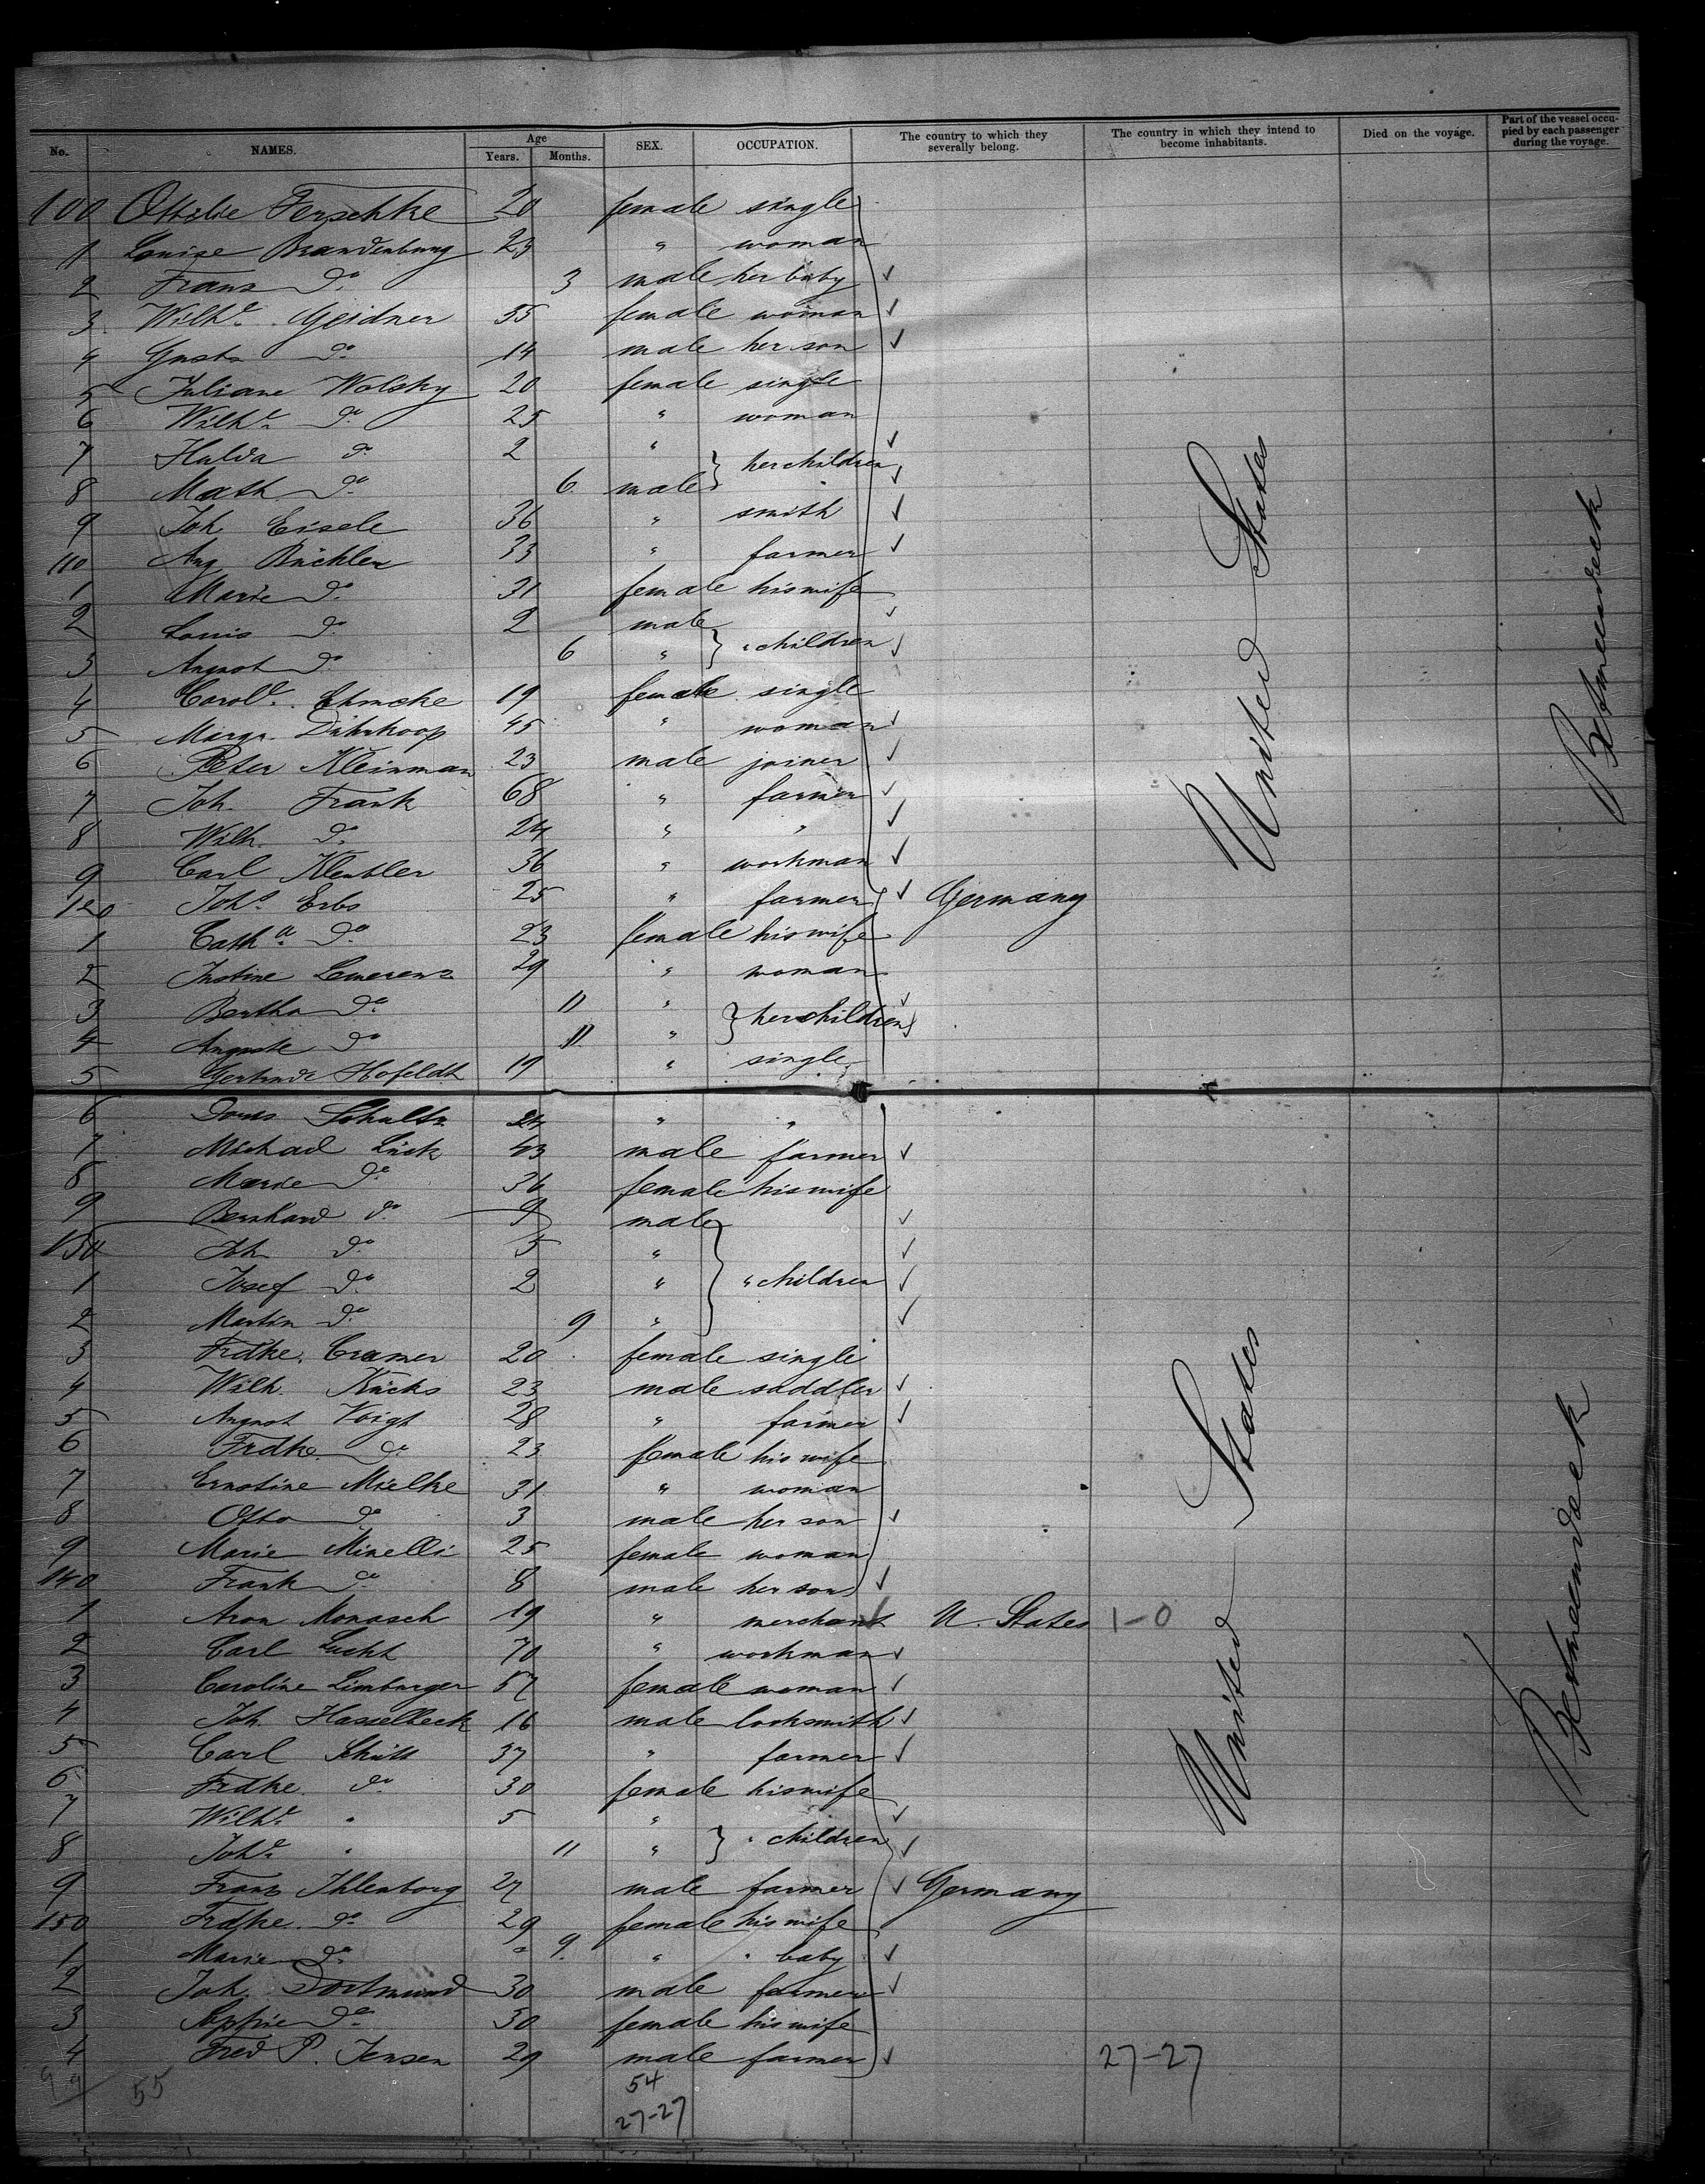 No. NAMES. Age Years. Months. SEX. OCCUPATION. The country to which they severally belong. The country in which they intend to become inhabitants. Died on the voyage. Part of the vessel occupied by each passenger during the voyage.
100 Ottilie Ferschke 20 female single
1 Louise Brandenburg 23 " woman
2 Franz do 3 male her baby ✓
3 Wilhe Geidner 55 female woman ✓
4 Gust do 14 male her son ✓
5 Juliane Wolsky 20 female single
6 Wilhe do 25 " woman
7 Hulda do 2 " ✓
8 Math do 6 male } her children ✓
9 Joh. Eisele 36 " smith ✓
110 Aug Büchler 33 " farmer ✓
1 Marie do 31 female his wife
2 Louis do 2 male ✓
3 August do 6 " } " children ✓
4 Carole. Ehmcke 19 female single
5 Margr. Dührkoop 45 " woman ✓
6 Peter Kleinman 23 male joiner ✓
7 Joh. Frank 68 " farmer ✓
8 Wilh. do 24 " " ✓
9 Carl 36 " workman ✓
120 Johs Erbs 25 " farmer ✓ Germany
1 Catha do 23 female his wife
2 Justine 29 " woman
3 Bertha do 11 " ✓
4 Auguste do 11 " } her children ✓
5 Gertrude Hofeldt 19 " single
United States
Betweendeck
6 Doris Schultz 24 " "
7 Michael Lück 43 male farmer ✓
8 Marie do 36 female his wife
9 Bernhard do 9 male ✓
130 Joh do 5 " ✓
1 Josef do 2 " } " children ✓
2 Martin do 9 " ✓
3 Frdke. Cramer 20 female single
4 Wilh. Kücks 23 male saddler ✓
5 August Voigt 28 " farmer ✓
6 Frdke. do 23 female his wife
7 Ernstine Mielke 31 " woman
8 Otto do 3 male her son ✓
9 Marie Minelli 25 female woman
140 Frank do 8 male her son ✓
1 Aron Monasch 19 " merchant ✓ U. States 1-0
2 Carl Lucht 70 " workman ✓
3 Caroline Limburger 57 female woman ✓
4 Joh. Hasselbeck 16 male locksmith ✓
5 Carl Schütt 37 " farmer ✓
6 Frdke. do 30 female his wife
7 Wilhe " 5 " ✓
8 Johe " 11 " } " children ✓
9 Franz Ihlenborg 27 male farmer ✓ Germany
150 Frdke. do 29 female his wife
1 Marie do " 9 " " baby ✓
2 Joh. Dortmund 30 male farmer ✓
3 do 30 female his wife
4 Fred P. Jensen 29 male farmer ✓ 27-27
United States
Betweendeck
99 55 54
27-27